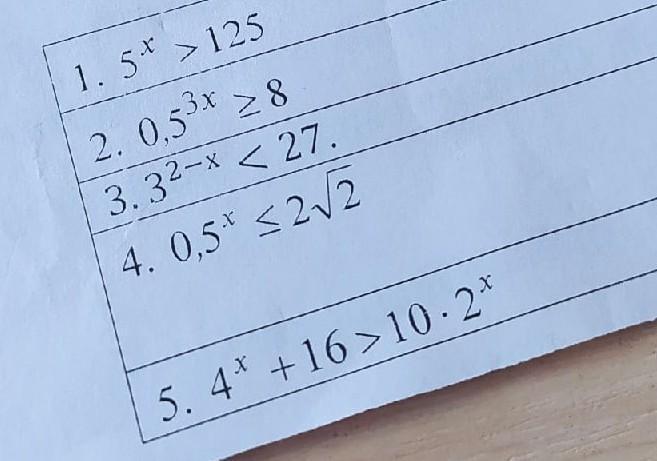 1. 5ˣ > 125
2. 0,5³ˣ ≥ 8
3. 3²⁻ˣ < 27.
4. 0,5ˣ ≤ 2√2
5. 4ˣ + 16 > 10 · 2ˣ